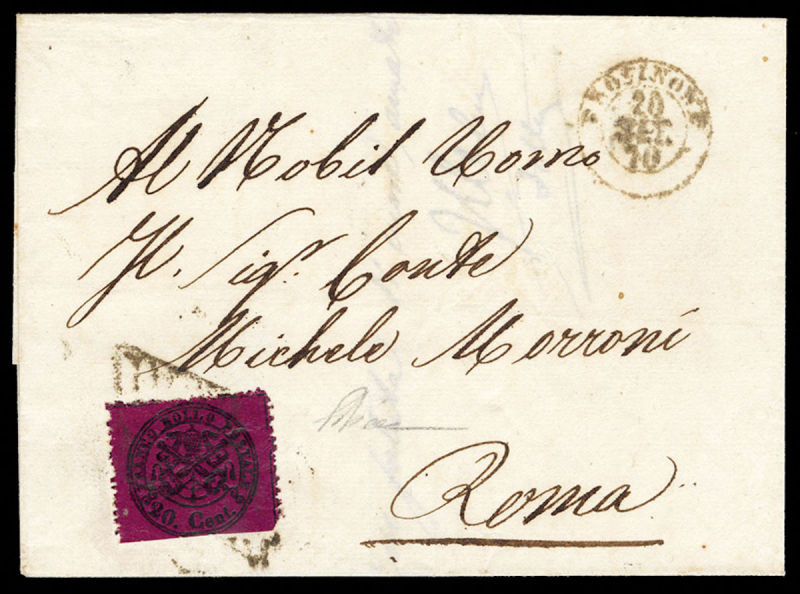 FROSINONE
20
SET.
70
Al Nobil Uomo
Il Sigr. Conte
Michele Morroni
Roma
FRANCO BOLLO POSTALE
20. Cent.